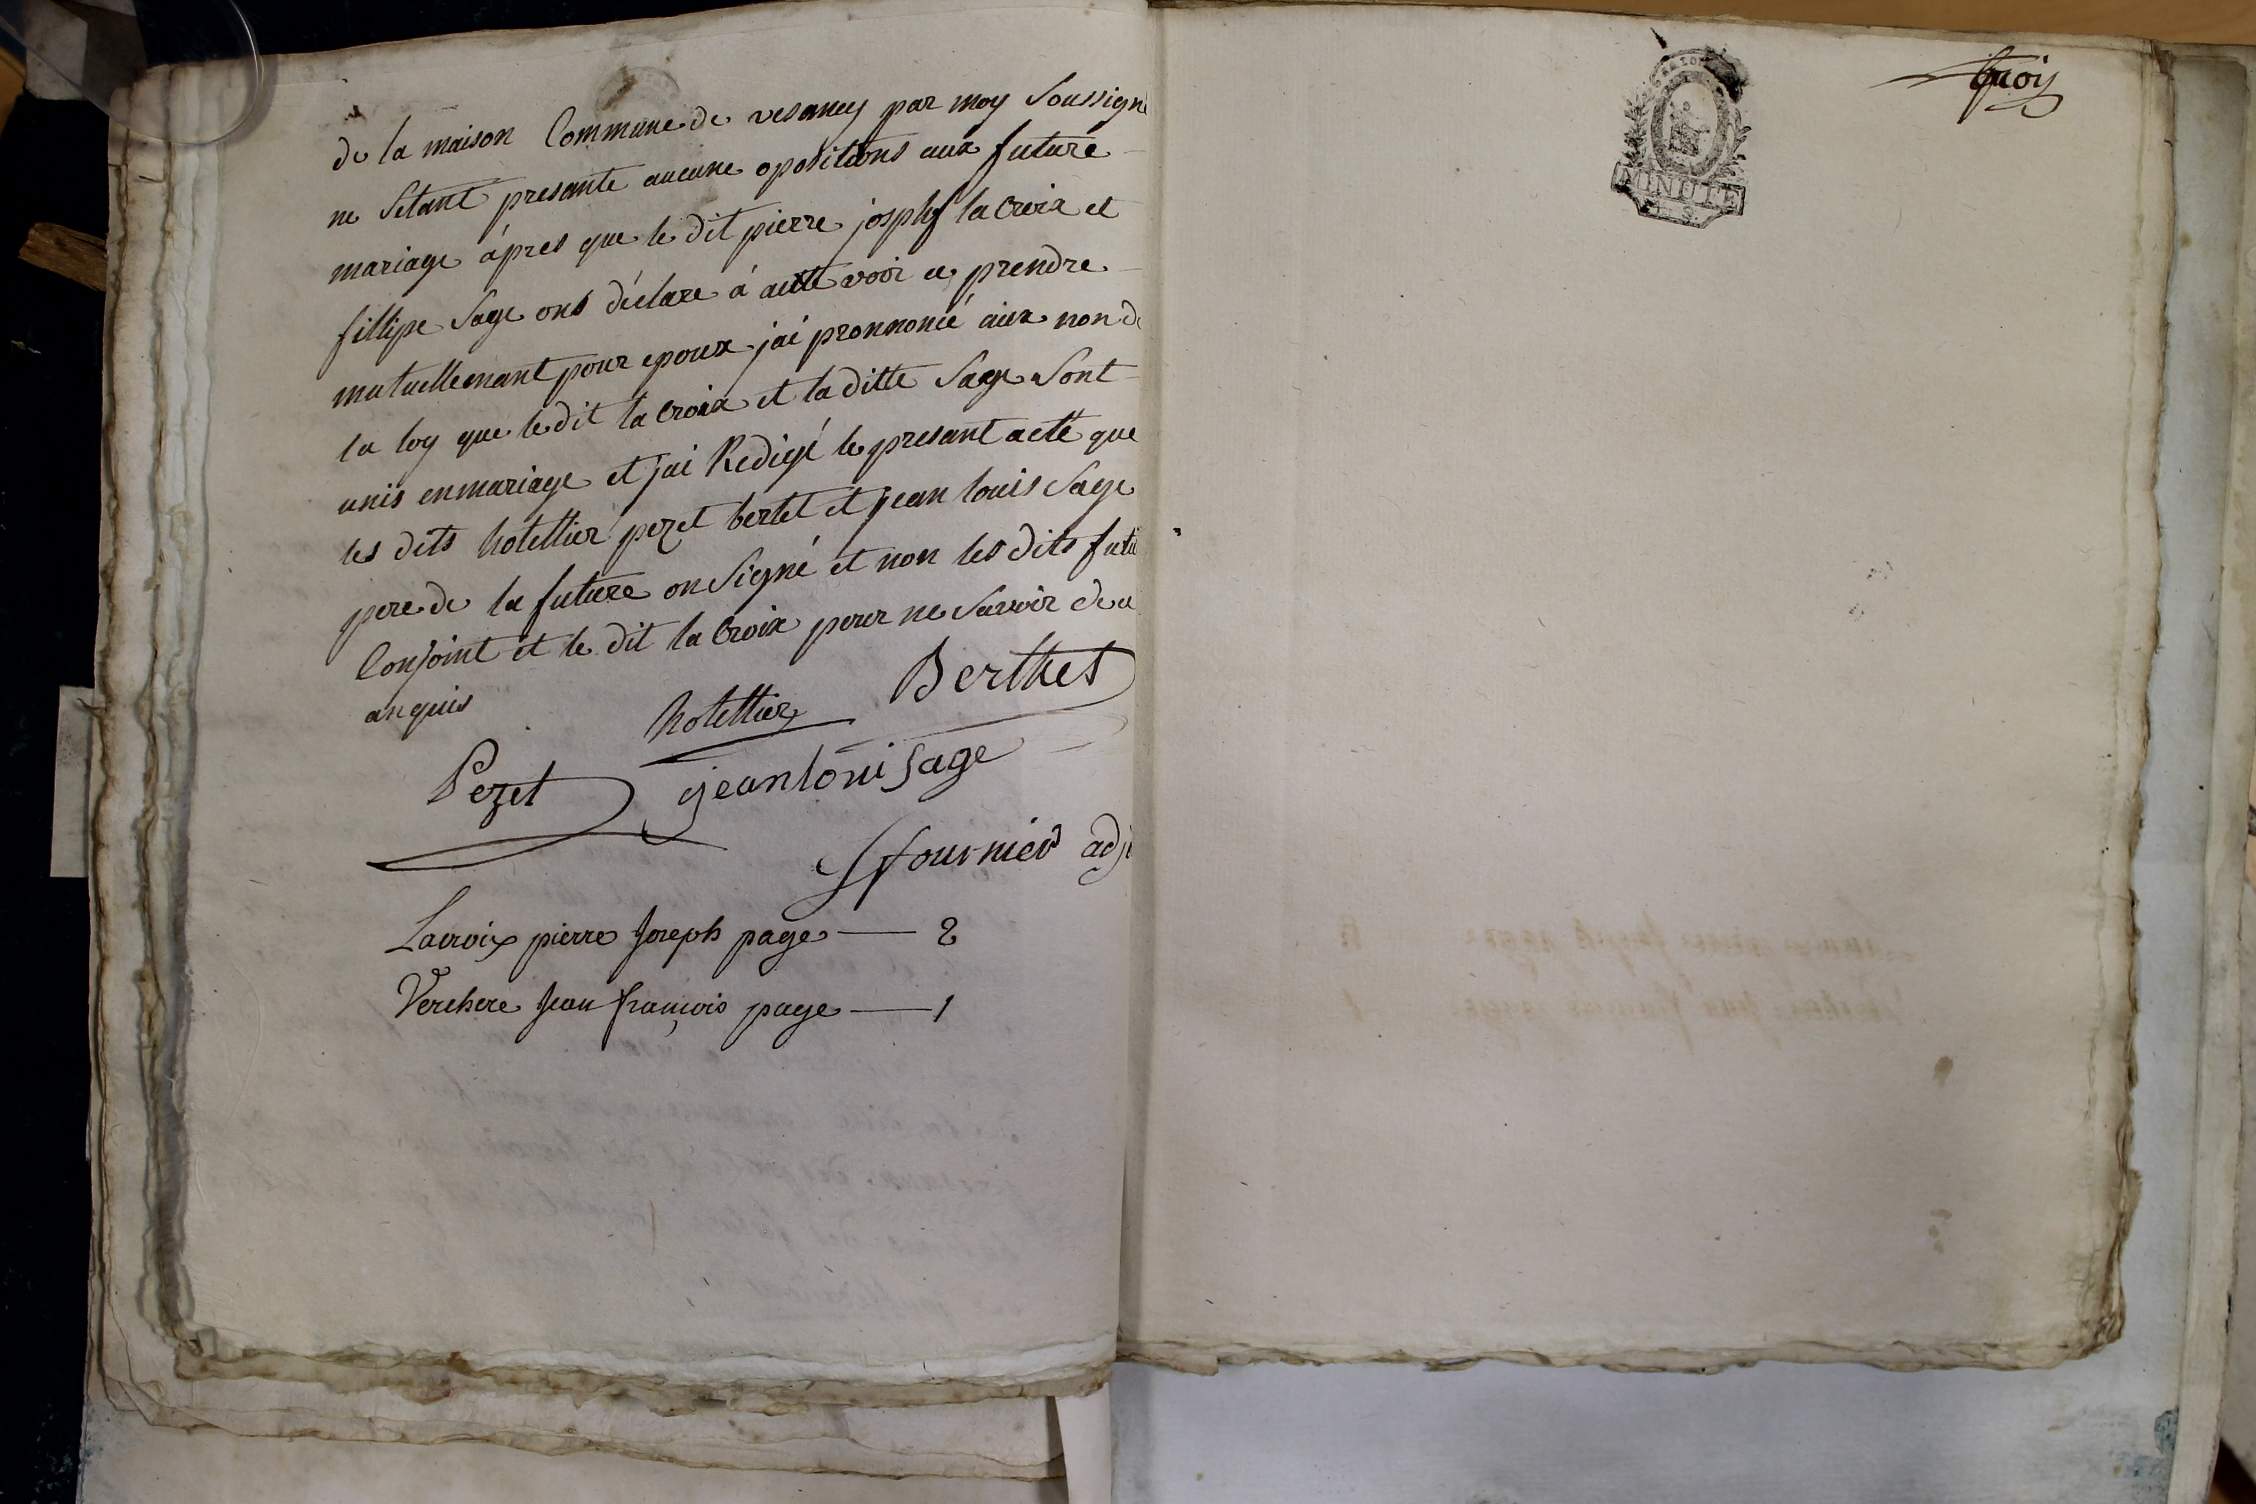 de la maison Commune de vesancy par moy Soussigné
ne Sétant presanté aucune opositions aux future
mariage àpres que le dit pierre josphf la Croix et
fillipe Sage ons déclare à aute vooi a prendre
mutuellemant pour epoux jai pronnoncé aux non de
la loy que le dit la Croix et la ditte Sage Sont
unis en mariage et jai Redigé le presant acte que
les dits hotellier pezet bertet et jean louis Sage
pere de la future on Signé et non les dits futu
Conjoint et le dit la Croix pour ne Savoir de ce
anquis
hotellier Berthet
Pezet jean loui Sage
fournier adj
Lacroix pierre Joseph page — 2
Verchere Jean françois page — 1
MINUTE